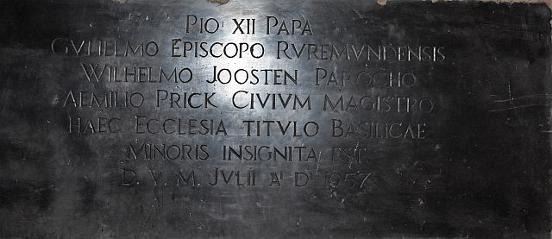 PIO XII PAPA
GVLIELMO EPISCOPO RVREMVNDENSIS
WILHELMO JOOSTEN PAROCHO
AEMILIO PRICK CIVIVM MAGISTRO
HAEC ECCLESIA TITVLO BASILICAE
MINORIS INSIGNITA EST
D. V. M. JVLII A D 1957